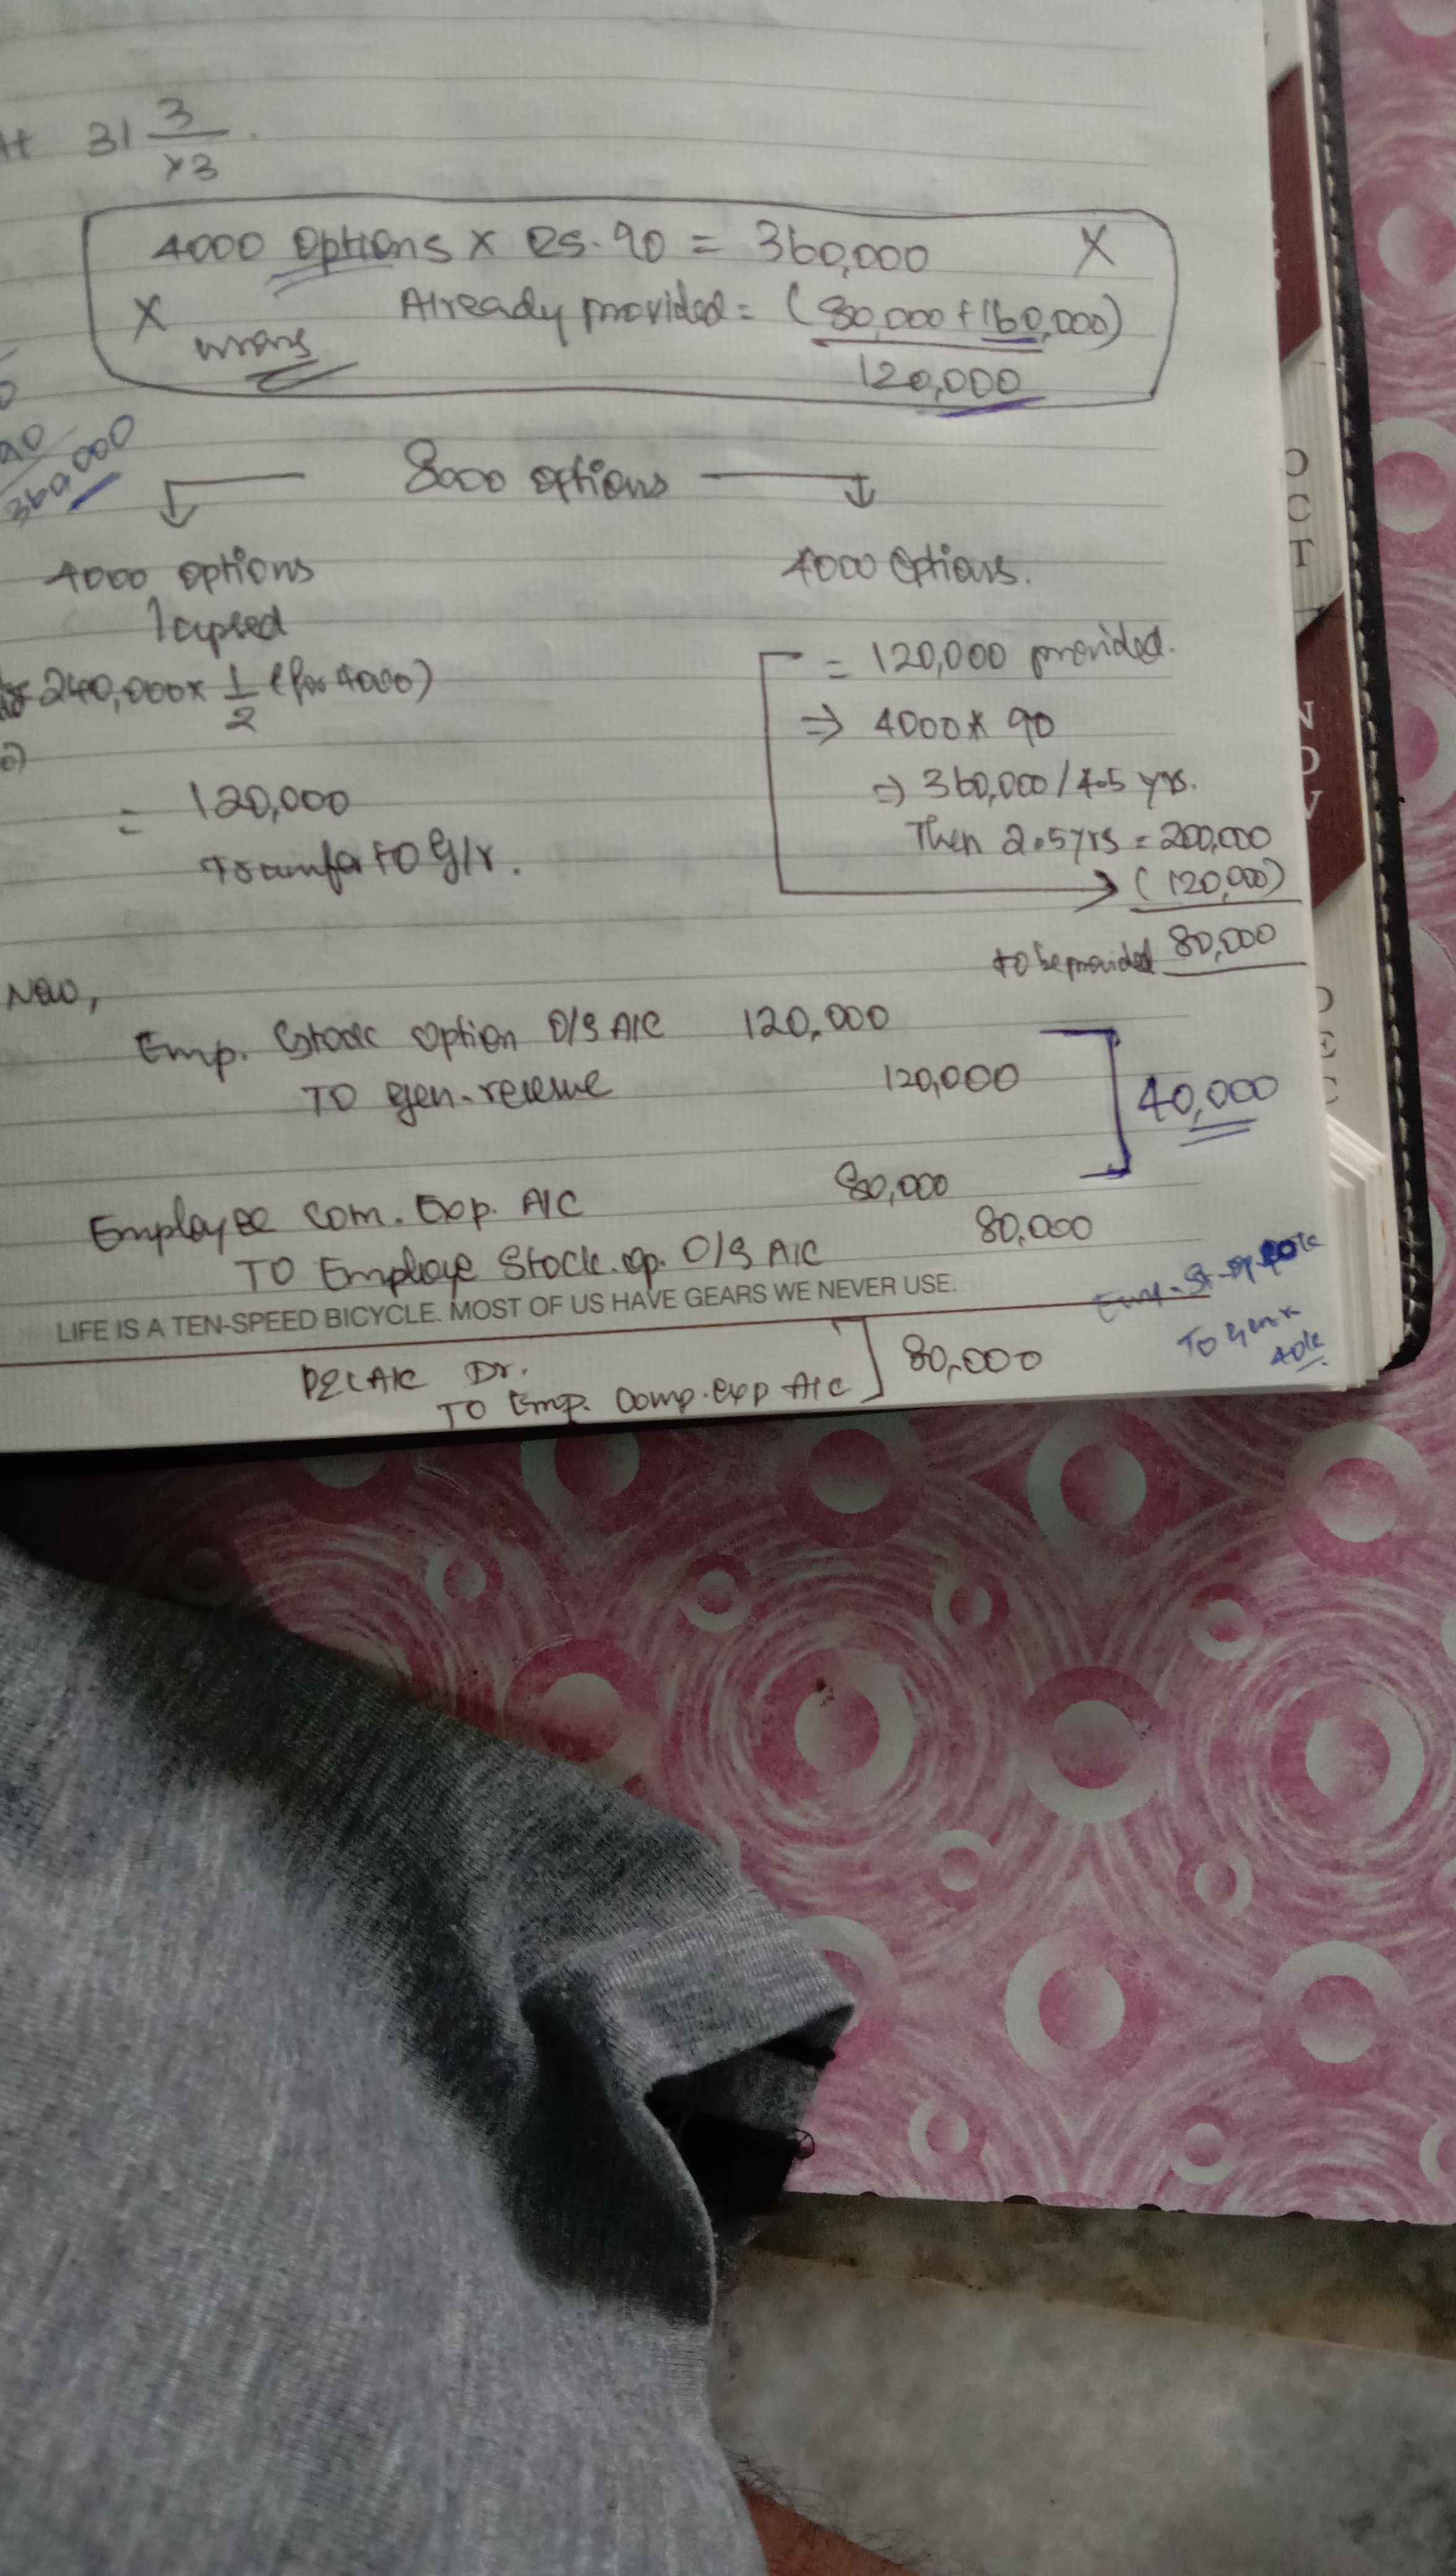 At 31 3/Y3.
4000 options × Rs. 90 = 360,000 X
X Already provided = (80,000 + 160,000)
wrong
120,000
90
360,000
8000 options
4000 options 4000 options.
lapsed
240,000 × 1/2 (for 4000)
= 120,000 provided.
⇒ 4000 × 90
= 120,000
⇒ 360,000 / 4.5 yrs.
Transfer to G/r.
Then 2.5 yrs = 200,000
(120,000)
to be provided 80,000
Now,
Emp. Stock option O/S A/C 120,000
TO gen. reserve 120,000
40,000
Employee Com. Exp. A/C 80,000
TO Employe Stock. op. O/S A/C 80,000
LIFE IS A TEN-SPEED BICYCLE. MOST OF US HAVE GEARS WE NEVER USE.
P&L A/C Dr.
TO Emp. Comp. exp A/C 80,000
Emp. St. op
TO gen r
40k
O
C
T
N
O
V
D
E
C